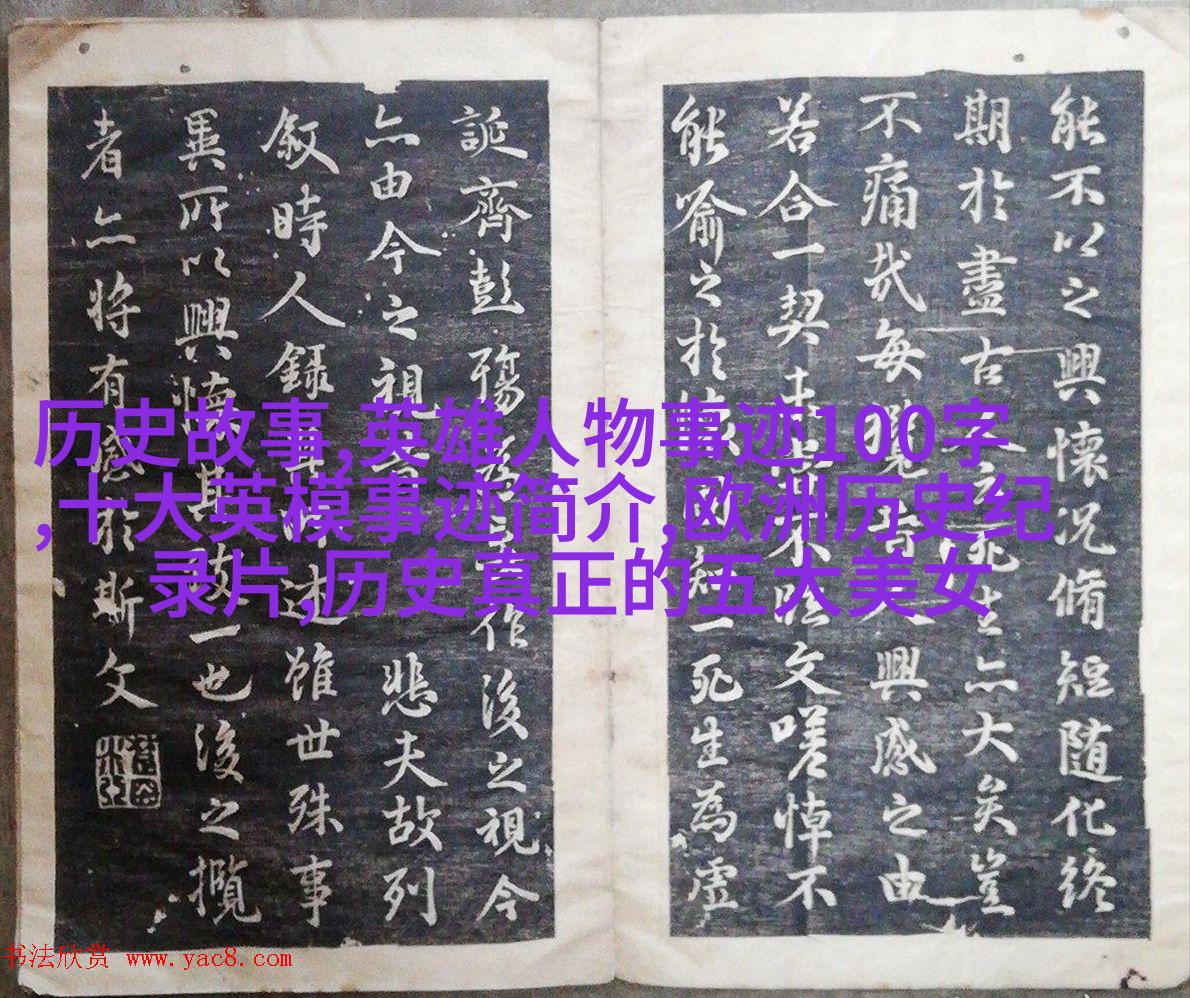 能不以之興懷况脩短随化終
期於盡古人云死生亦大矣豈
不痛哉每攬昔人興感之由
若合一契未嘗不臨文嗟悼不
能喻之於懷固知一死生為虛
誕齊彭殤為妄作後之視今
亦由今之視昔悲夫故列
叙時人録其所述雖世殊事
異所以興懷其致一也後之攬
者亦将有感於斯文
历史故事,英雄人物事迹100字
,十大英模事迹简介,欧洲历史纪
录片,历史真正的五大美女
书法欣赏 www.yac8.com